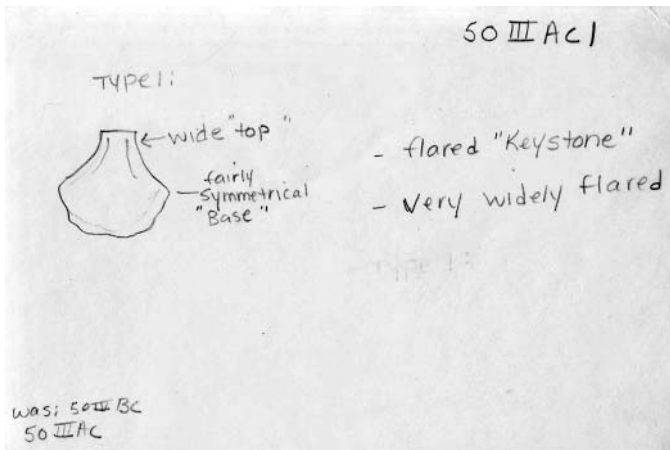 50 III AC1
Type 1:
wide "top"
fairly
symmetrical
"Base"
- flared "Keystone"
- Very widely flared
Type 1:
was: 50 III BC
50 III AC